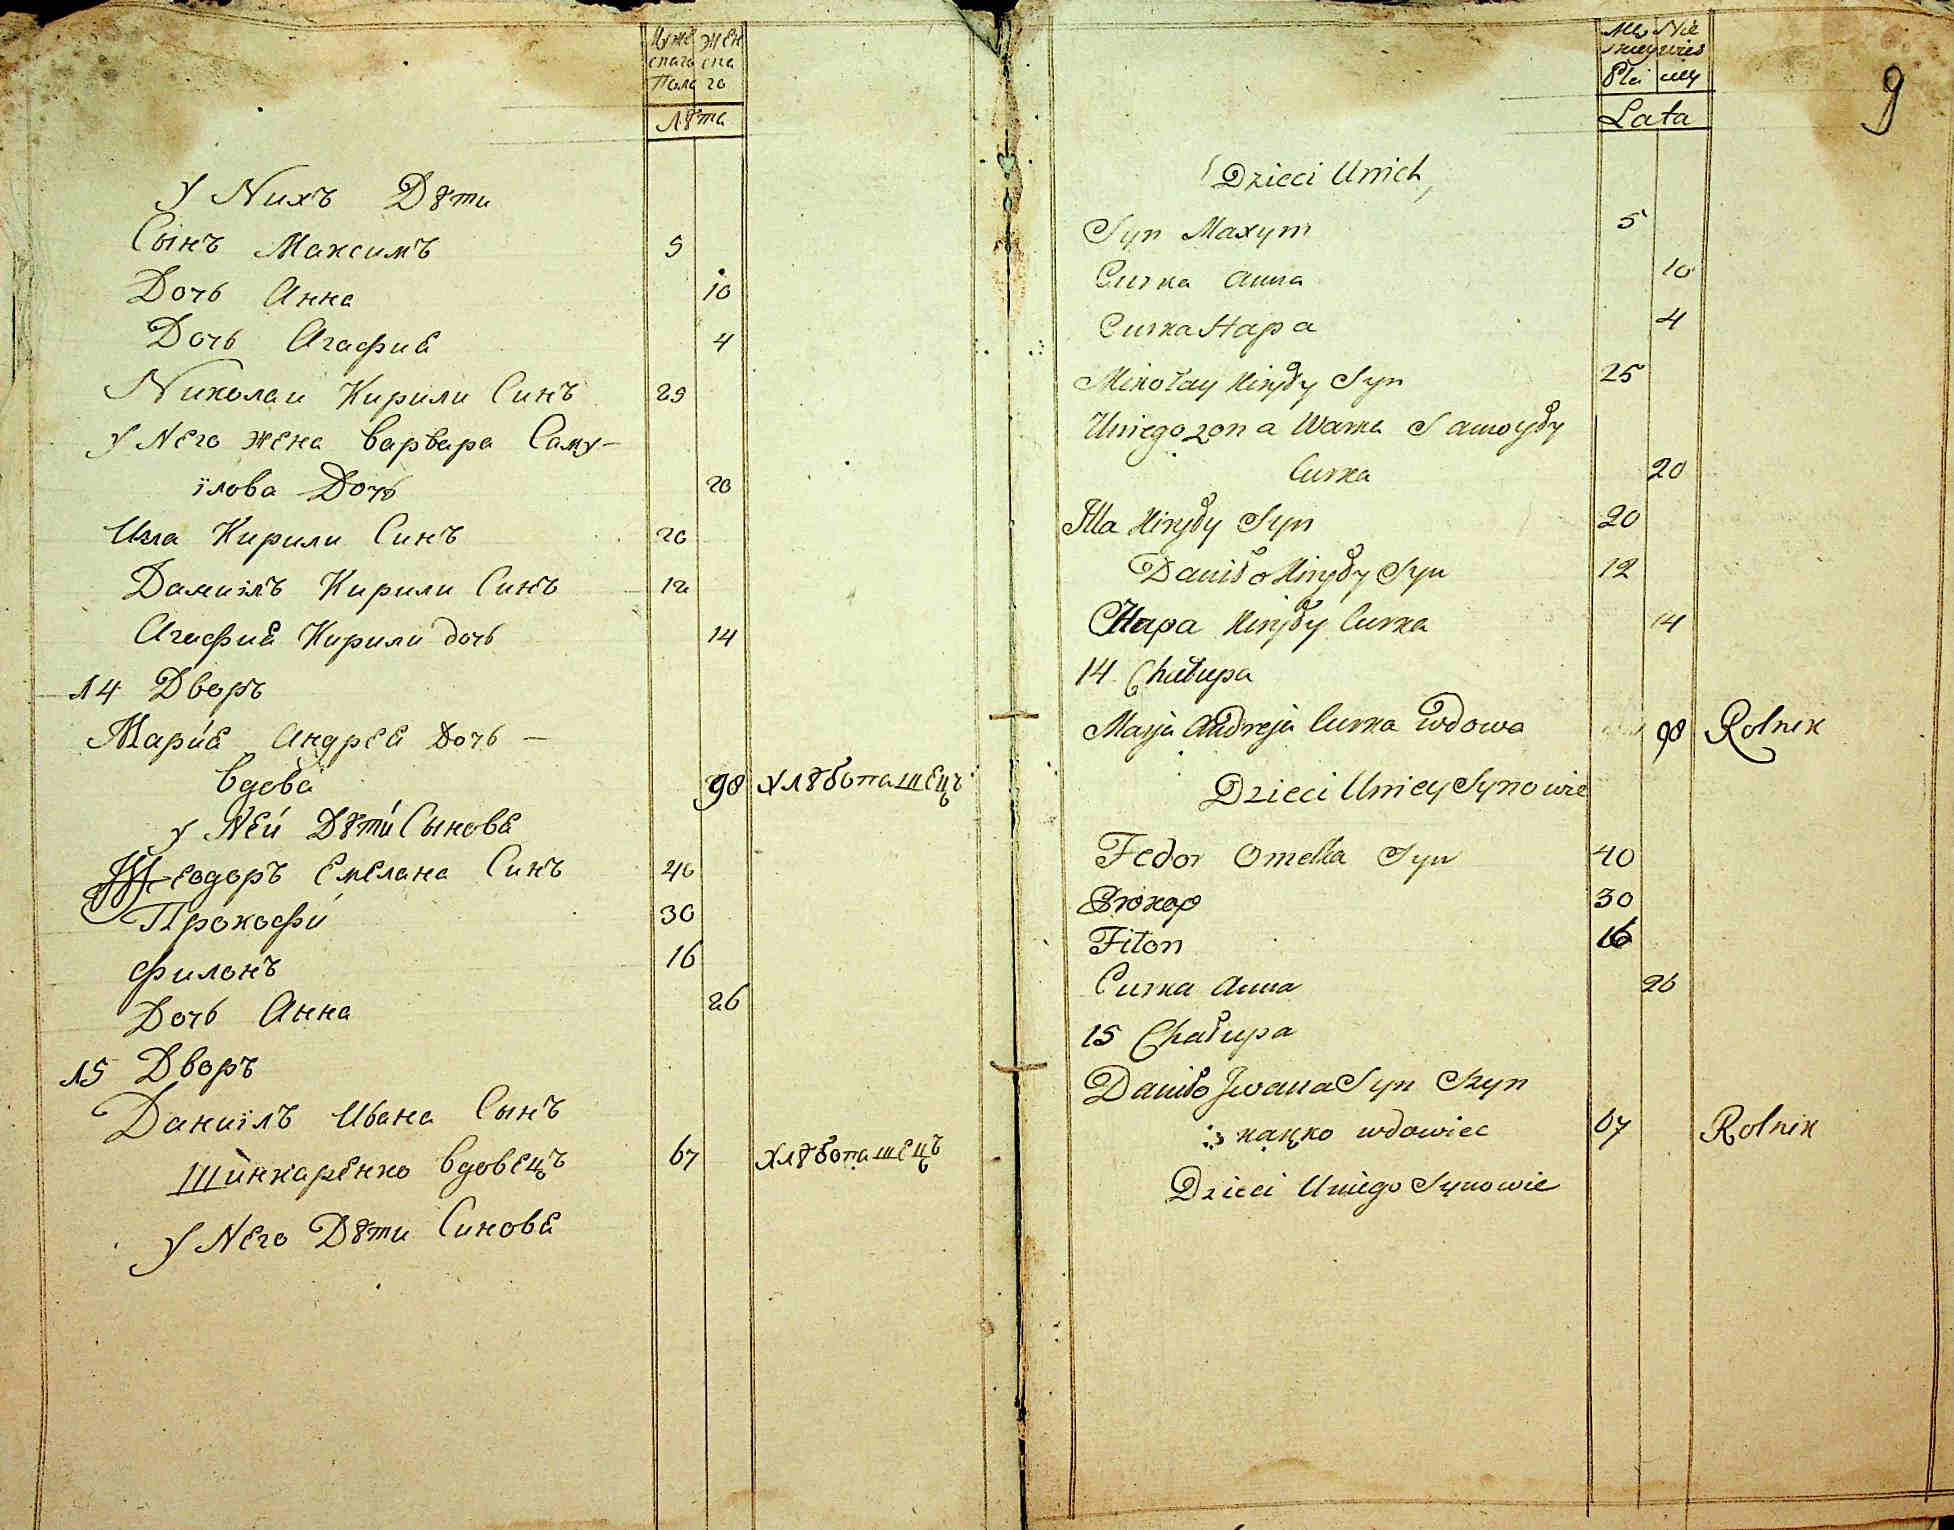 Муже Жен
скаго ска
Пола го
Лѣта
У Нихъ Дѣти
Сынъ Максимъ 5
Дочь Анна 10
Дочь Агафиа 4
Николаи Кирили Синъ 25
У Него жена Варвара Саму-
їлова Дочь 20
Илла Кирили Синъ 20
Даниїлъ Кирили Синъ 12
Агафиа Кирили дочь 14
14 Дворъ
Мариа Андрея Дочь -
вдова 90 хлѣбопашецъ
У Ней Дѣти Сынове
Ѳеодоръ Емеляна Синъ 40
Прокофи 30
Филонъ 16
Дочь Анна 26
15 Дворъ
Даниїлъ Ивана Сынъ
Шинкаренко вдовецъ 67 хлѣбопашецъ
У Него Дѣти Синове
9
Męz Nie
skiey wies
Plci ciey
Lata
Dzieci Unich
Syn Maxym 5
Curka Anna 10
Curka Hapa 4
Mikołay Kiryły Syn 25
Uniego zona Warka Samoyły
Curka 20
Illa Kiryły Syn 20
Daniło Kiryły Syn 12
Hapa Kiryły Curka 14
14 Chałupa
Marja Andreja Curka wdowa 90 Rolnik
Dzieci Uniey Synowie
Fedor Omelka Syn 40
Prokop 30
Fiłon 16
Curka Anna 26
15 Chałupa
Daniło Jwana Syn Szyn
karęko wdowiec 67 Rolnik
Dzieci Uniego Synowie